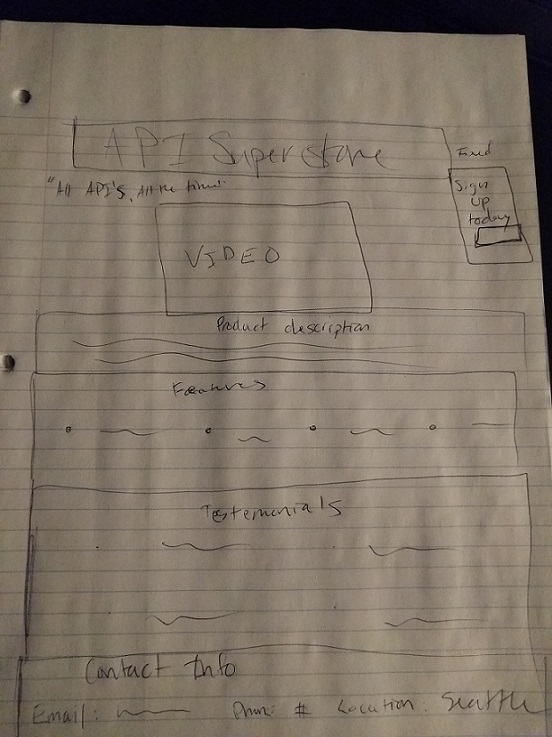 API Superstore
"All API's, All the time"
Fixed
Sign
up
today
VIDEO
Product description
Features
Testemonials
Contact Info
Email: Phone: # Location: Seattle